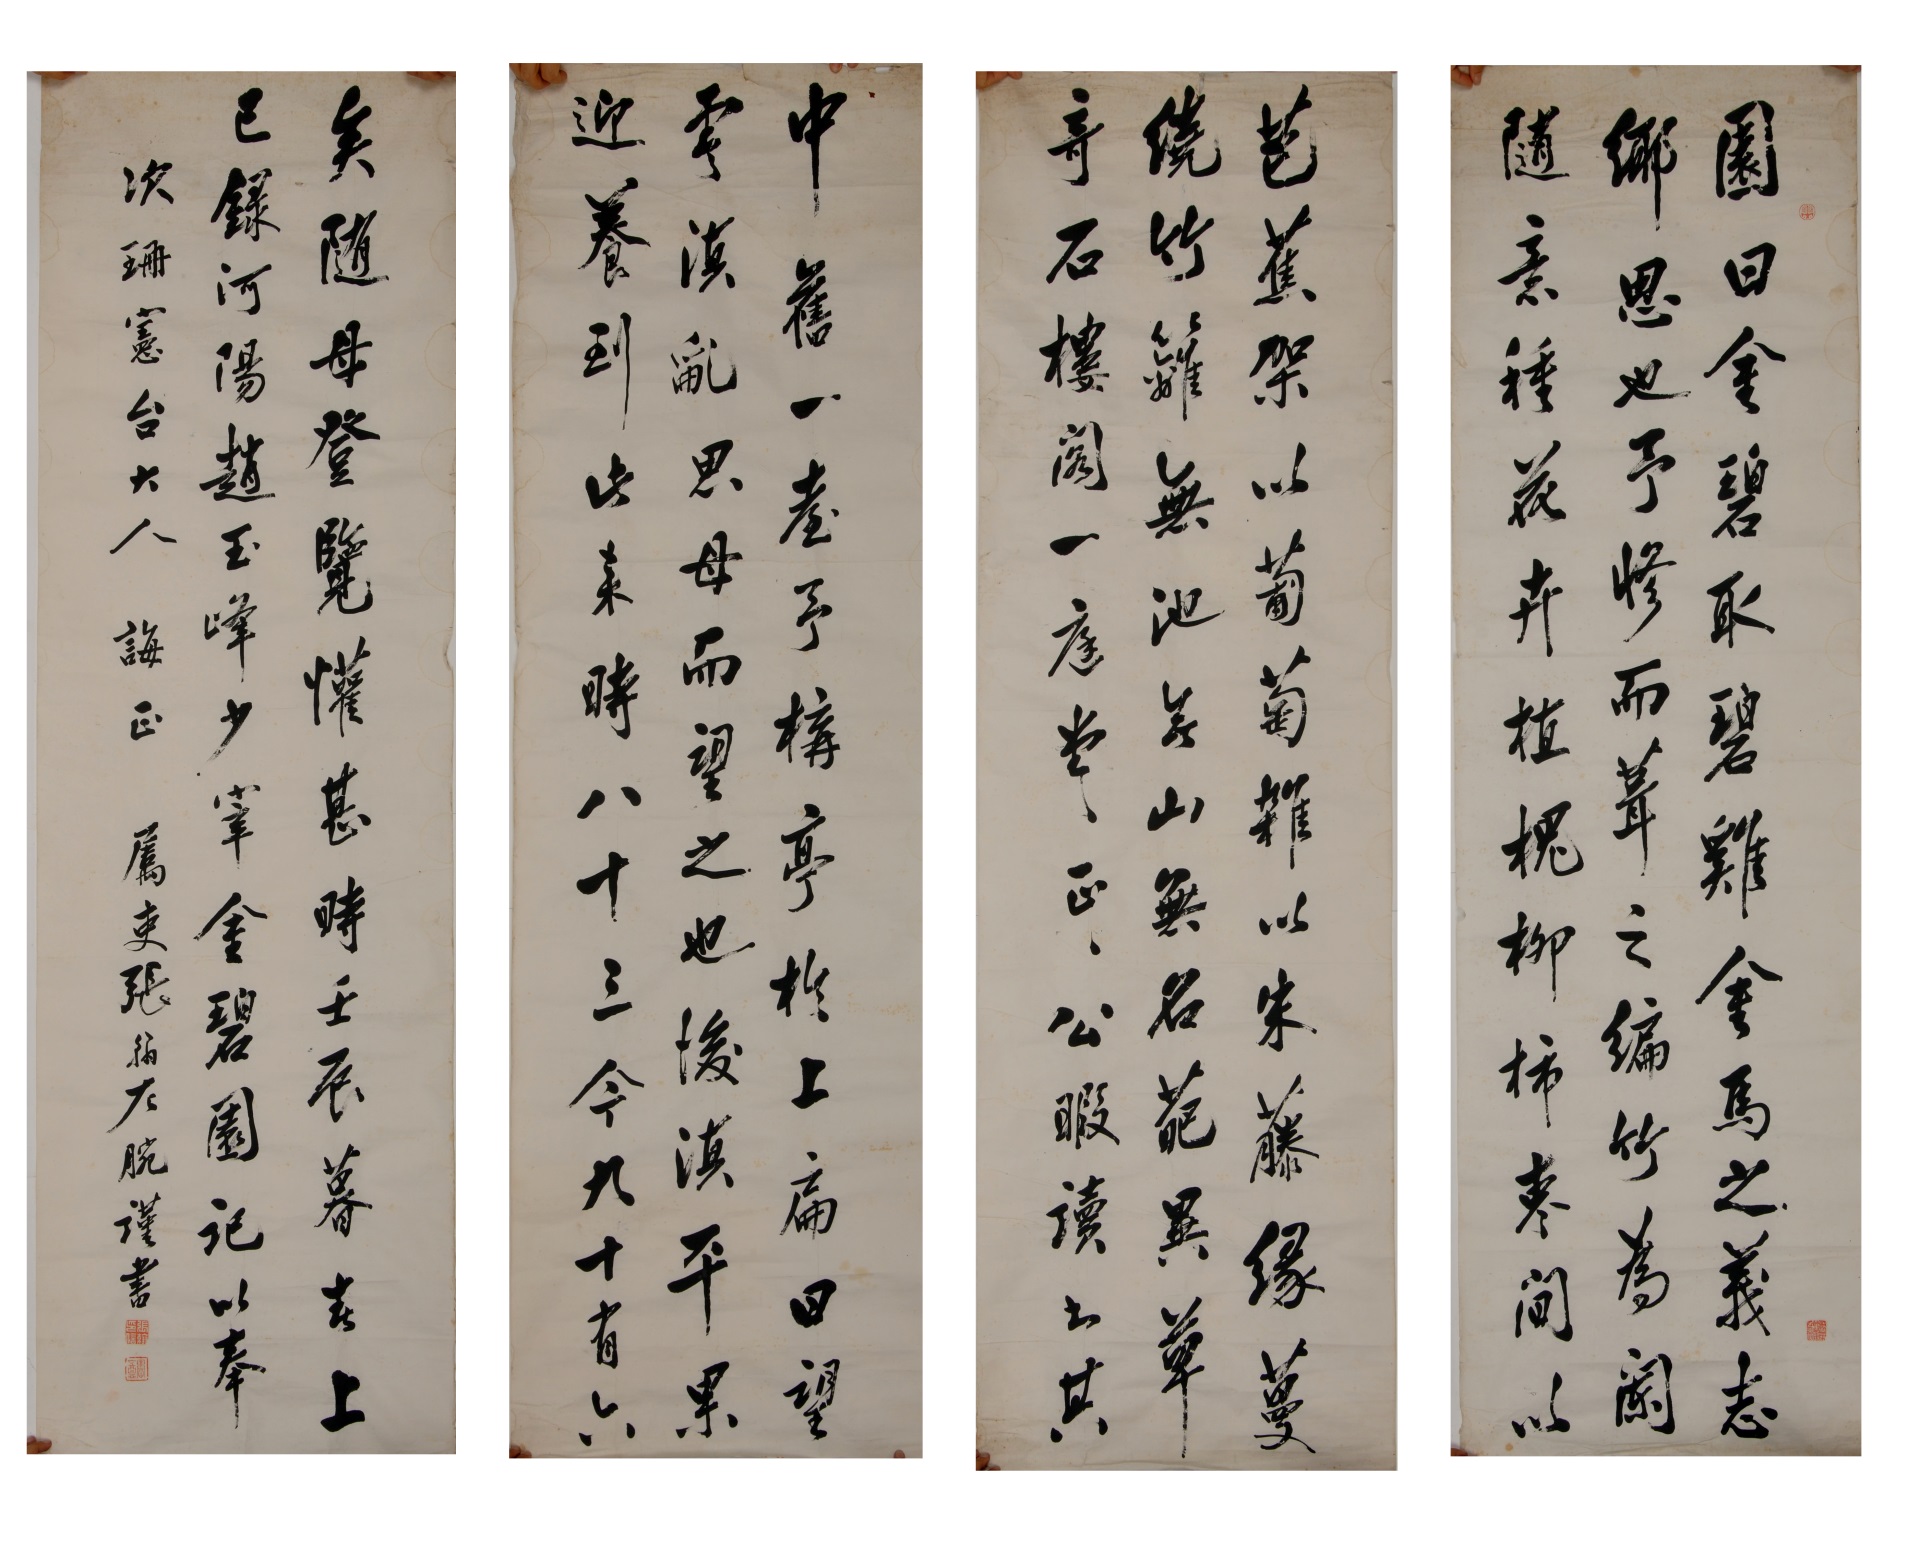 園曰金碧取碧雞金馬之義志
鄉思也予修而葺之編竹為闌
隨意種花卉植槐柳柿棗間以
芭蕉架以葡萄籬以朱藤緣蔓
繞竹籬無池無山無名葩異草
奇石樓閣一庭堂公暇讀書其
中舊一臺予構亭於上扁曰望
雲滇亂思母而望之也後滇平果
迎養到此來時八十三今九十有六
矣隨母登覽懽甚時壬辰暮春上
巳錄河陽趙玉峰少宰金碧園記以奉
次珊憲台大人 誨正 屬吏張翁左腕謹書